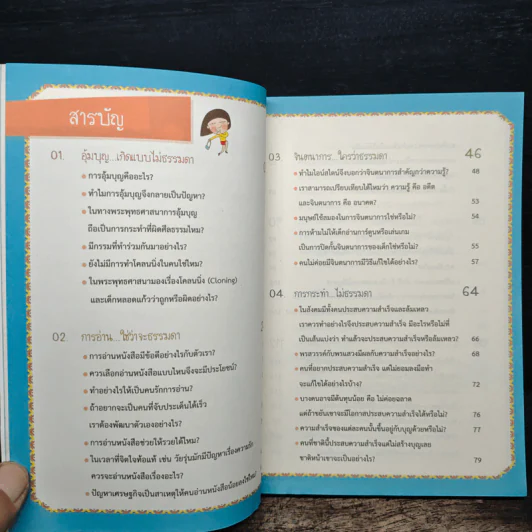 สารบัญ
01. อุ้มบุญ...เกิดแบบไม่ธรรมดา
• การอุ้มบุญคืออะไร?
• ทำไมการอุ้มบุญจึงกลายเป็นปัญหา?
• ในทางพระพุทธศาสนาการอุ้มบุญ
ถือเป็นการกระทำที่ผิดศีลธรรมไหม?
• มีกรรมที่ทำร่วมกันมาอย่างไร?
• ยังไม่มีการทำโคลนนิ่งในคนใช่ไหม?
• ในพระพุทธศาสนามองเรื่องโคลนนิ่ง (Cloning)
และเด็กหลอดแก้วว่าถูกหรือผิดอย่างไร?
02. การอ่าน...ใช้ว่าจะธรรมดา
• การอ่านหนังสือมีข้อดีอย่างไรกับตัวเรา?
• ควรเลือกอ่านหนังสือแบบไหนจึงจะมีประโยชน์?
• ทำอย่างไรให้เป็นคนรักการอ่าน?
• ถ้าอยากจะเป็นคนที่จับประเด็นได้เร็ว
เราต้องพัฒนาตัวเองอย่างไร?
• การอ่านหนังสือช่วยให้รวยได้ไหม?
• ในเวลาที่จิตใจท้อแท้ เช่น วัยรุ่นมักมีปัญหาเรื่องความรัก
ควรจะอ่านหนังสือเรื่องอะไร?
• ปัญหาเศรษฐกิจเป็นสาเหตุให้คนอ่านหนังสือน้อยลงใช่ไหม?
03 จินตนาการ...ใครว่าธรรมดา 46
• ทำไมไอน์สไตน์จึงบอกว่าจินตนาการสำคัญกว่าความรู้? 48
• เราสามารถเปรียบเทียบได้ไหมว่า ความรู้ คือ อดีต
และจินตนาการ คือ อนาคต? 53
• มนุษย์ใช้สมองในการจินตนาการใช่หรือไม่? 54
• การห้ามไม่ให้เด็กอ่านการ์ตูนหรือเล่นเกม
เป็นการปิดกั้นจินตนาการของเด็กใช่หรือไม่? 55
• คนไม่ค่อยมีจินตนาการมีวิธีแก้ไขได้อย่างไร? 57
04 การกระทำ...ไม่ธรรมดา 64
• ในสังคมมีทั้งคนประสบความสำเร็จและล้มเหลว
เราควรทำอย่างไรจึงประสบความสำเร็จ มีอะไรหรือไม่ที่
เป็นเส้นแบ่งว่า ทำแล้วจะประสบความสำเร็จหรือล้มเหลว? 66
• พรสวรรค์กับพรแสวงมีผลกับความสำเร็จอย่างไร? 68
• คนที่อยากประสบความสำเร็จ แต่ไม่ยอมลงมือทำ
จะแก้ไขได้อย่างไรบ้าง? 72
• บางคนอาจมีต้นทุนน้อย คือ ไม่ค่อยฉลาด
แต่ถ้าขยันเขาจะมีโอกาสประสบความสำเร็จได้หรือไม่? 76
• ความสำเร็จของแต่ละคนนั้นขึ้นอยู่กับบุญด้วยหรือไม่? 77
• คนที่ชาตินี้ประสบความสำเร็จแต่ไม่สร้างบุญเลย
ชาติหน้าเขาจะเป็นอย่างไร? 79